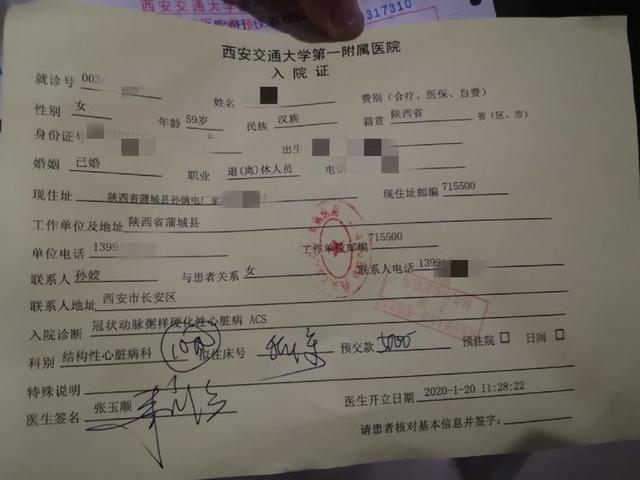 317310
西安交通大学第一附属医院
入院证
就诊号 003 姓名 费别(合疗、医保、自费)
性别 女 年龄 59岁 民族 汉族 籍贯 陕西省 省(区、市)
身份证号 出生
婚姻 已婚 职业 退(离)休人员 电话
现住址 陕西省蒲城县孙镇电厂家 现住址邮编 715500
工作单位及地址 陕西省蒲城县 工作单位邮编 715500
单位电话 1399
联系人 孙姣 与患者关系 女 联系人电话 1399
联系人地址 西安市长安区
入院诊断 冠状动脉粥样硬化性心脏病 ACS
科别 结构性心脏病科 拟住床号 预交款 预住院 □ 日间 □
特殊说明
医生签名 张玉顺 医生开立日期 2020-1-20 11:28:22
请患者核对基本信息并签字: